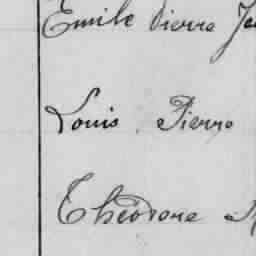 Emile Pierre
Louis Pierre
Théodore